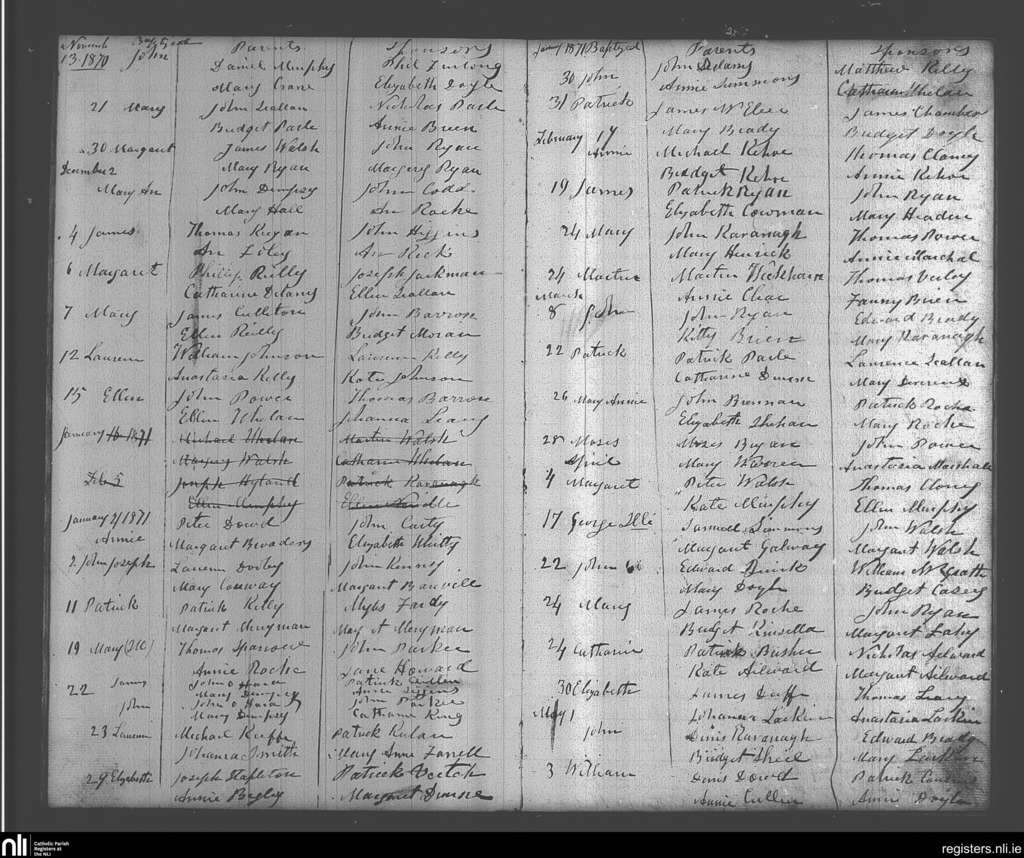 Novemb Baptized Parents Sponsors
13 1870 John Daniel Murphy Phil Furlong
Mary Crane Elizabeth Doyle
21 Mary John Scallan Nicholas Parle
Budget Parle Annie Breen
30 Margaret James Welsh John Ryan
December 2 Mary Ryan Margery Ryan
Mary An John Dempsy John Codd
Mary Hall An Roche
4 James Thomas Regan John Higgins
An Foley An Rick
6 Margaret Phillip Reilly Joseph Jackman
Catharine Delany Ellen Scallan
7 Mary James Culleton John Barrose
Ellen Reilly Budget Moran
12 Laurenn William Johnson Laurence Kelly
Anastasia Kelly Kate Johnson
15 Ellen John Power Thomas Barrose
Ellen Whelan Johanna Leary
January 16 1871 Michael Whelan Martin Walsh
Margery Walsh Catharin Whelan
Feb 5 Joseph Hyland Patrick Kavanagh
Ellen Murphy Ellen Neville
January 2/1871 Peter Dowd John Carty
Annie Margaret Broaders Elizabeth Whitty
2 John Joseph Laurenn Dooley John Kinney
Mary Conway Margaret Banvell
11 Patrick Patrick Kelly Myles Fardy
Margaret Merryman Mary A Merryman
19 Mary (Ill) Thomas Sparrow John Parker
Annie Roche Jane Howard
22 James John O Hara Patrick Cullen
Mary Dempsey Annie
John John O Hara John Parker
Mary Dempsy Catharne King
23 Laurenn Michael Keeffe Patrick Kulan
Johanna Smith Mary Anne Farrell
29 Elizabeth Joseph Stapleton Patrick Veitch
Annie Bagley Margaret Dunne
Jany 1871 Baptized Parents Sponsors
30 John John Adams Matthew Kelly
Annie Simmons Catharine Whelan
31 Patrick James McElee James Chambers
Mary Brady Budget Doyle
February 14 Michael Kehoe Thomas Clancy
Annie Bridget Kehoe Annie Kehoe
19 James Patrick Ryan John Ryan
Elizabeth Cowman Mary Headen
24 Mary John Kavanagh Thomas Power
Mary Henrick Annie Marshal
24 Martin Martin Wickham Thomas
March Annie Chae Fanny Brien
8 John John Ryan Edward Brady
Kitty Brien Mary Kavanagh
22 Patrick Patrick Parle Laurence Scallan
Catharine Dunne Mary
26 Mary Annie John Brennan Patrick Roche
Elizabeth Shehan Mary Roche
28 Moses Moses Bryan John Power
April Mary Anastasia Marshall
4 Margaret Peter Walsh Thomas Cloney
Kate Murphy Ellen Murphy
17 George Ille Samuell Simmons John Walsh
Margaret Galway Margaret Walsh
22 John Edward Quirk William McGrath
Mary Doyle Budget Casey
24 Mary James Roche John Ryan
Budget Kinsella Margaret Lahy
24 Catharin Patrick Busher Nicholas Ailward
Kate Ailward Margaret Ailward
30 Elizabeth James Duffe Thomas Leary
May 1 Johanna Larkin Anastasia Larkin
John Dinis Kavanagh Edward Brady
Bridget Sheil Mary
3 William Denis Dowd Patrick
Annie Cullen Annie Doyle
nli Catholic Parish
Registers at
the NLI
registers.nli.ie